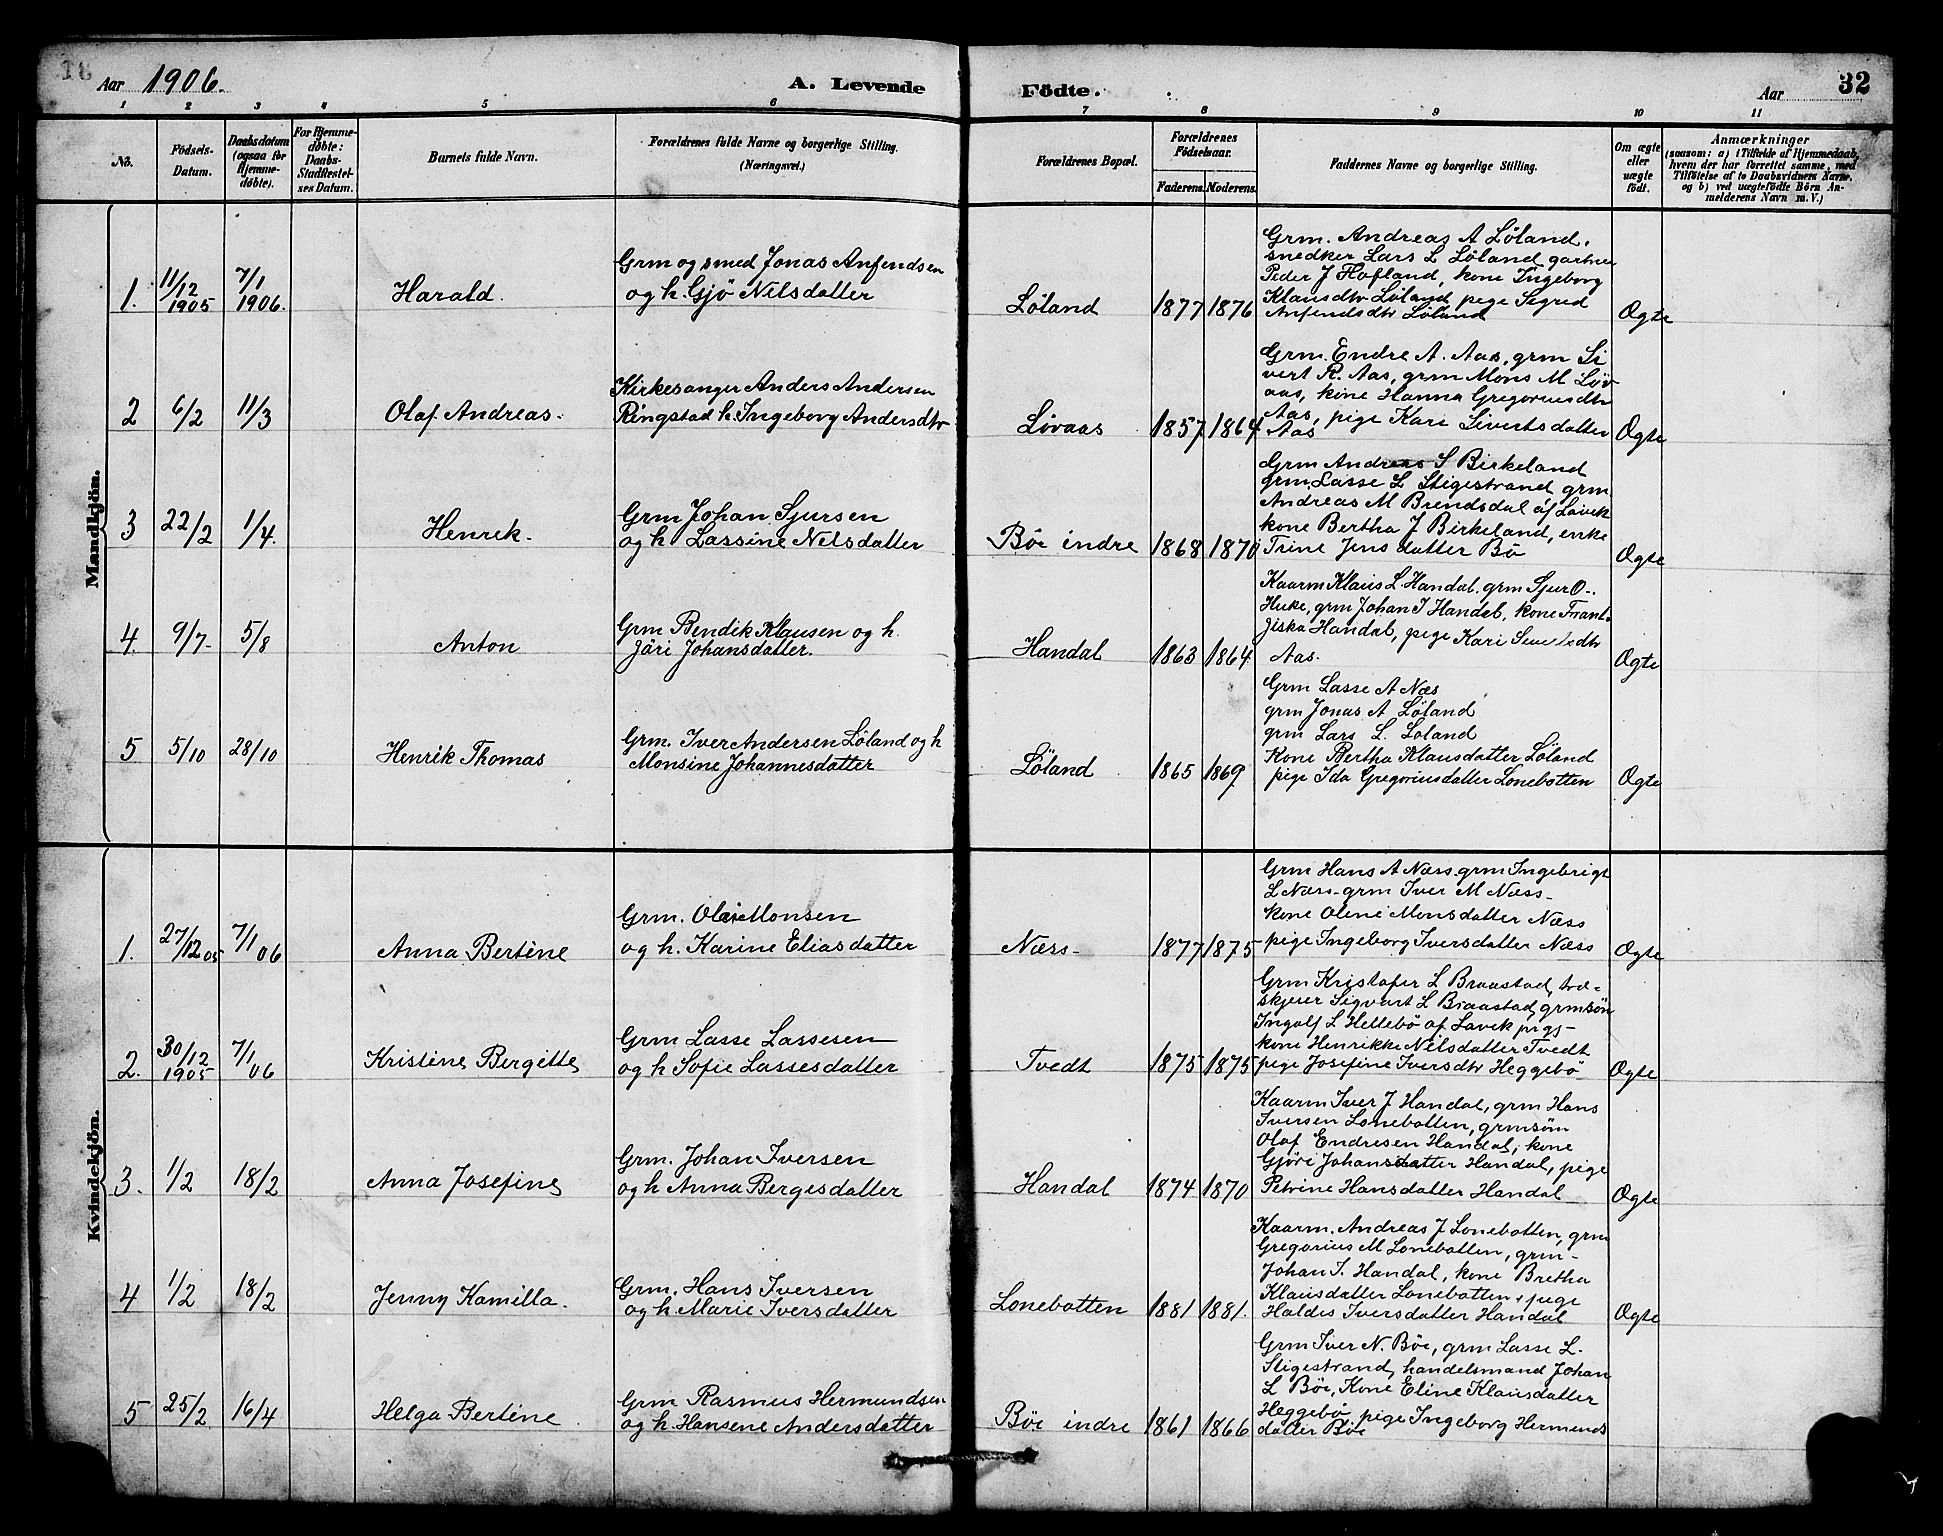 18 Aar 1906. A. Levende Födte. Aar 32
1 2 3 4 5 6 7 8 9 10 11
No. Födsels-Datum. Daabsdatum (ogsaa for Hjemmedøbte). For Hjemmedøbte: Daabs-Stadfæstelses Datum. Barnets fulde Navn. Forældrenes fulde Navne og borgerlige Stilling. (Næringsvei.) Forældrenes Bopæl. Forældrenes Födselsaar. Faderens. Moderens. Faddernes Navne og borgerlige Stilling. Om ægte eller uægte født.
Anmærkninger
(saasom: a) i Tilfælde af Hjemmedaab,
hvem der har forrettet samme, med
Tilføielse af to Daabsvidners Navne,
og b) ved uægtefødte Börn An-
melderens Navn m. V.)
Mandkjön.
1. 11/12 1905 7/1 1906. Harald.
Grm og smed Jonas Anfendsen
og h. Gjö Nilsdatter
Løland 1877 1876
Grm. Andreas A Løland,
snedker Lars L Løland gartner
Peder J Hofland, kone Ingeborg
Klausdtr Løland pige Sigred
Anfendsdtr Löland
Ægte
2 6/2 11/3 Olaf Andreas.
Kirkesanger Anders Andersen
Ringstad h. Ingeborg Andersdtr
Løvaas 1857 1864
Grm. Endre A. Aas, grm Si
vert R. Aas, grm Mons M Løv
aas, kone Hanna Gregoriusdtr
Aas, pige Kari Sivertsdatter
Aas
Ægte
3 22/2 1/4. Henrik.
Grm Johan Sjursen
og h Lassine Nilsdatter
Böe indre 1868 1870
Grm Andreas S Birkeland
grm. Lasse L Stigestrand grm
Andreas M Brendsdal af Lavik
kone Bertha J Birkeland, enke
Trine Jensdatter Bö
Ægte
4. 9/7- 5/8 Anton
Grm Bendik Klausen og h.
Jóri Johansdatter.
Handal 1863 1864
Kaarm Klaus L. Handal. grm Sjur O-.
Huke, grm Johan I Handal, kone Frant
ziska Handal, pige Kari
Aas.
Ægte
5 5/10 28/10 Henrik Thomas
Grm. Iver Andersen Løland og h
Monsine Johannesdatter
Löland 1865 1869
Grm Lasse A Næs
grm Jonas A Løland
grm Lars L. Loland
Kone Bertha Klausdatter Løland
pige Ida Gregoriusdatter Lonebotten
Ægte
Kvindekjön.
1. 27/12 05 7/1 06 Anna Bertine
Grm. Monsen
og h. Karine Eliasdatter
Næss- 1877 1875
Grm Hans A Næss-grm Ingebrigt
L Næss-grm Iver M Næss-
kone Oline Monsdatter Næss
pige Ingeborg Iversdatter Næss
Ægte
2. 30/12 1905 7/1 06 Kristine Bergitte
Grm Lasse Lassesen
og h Sofie Lassesdatter
Tvedt 1875 1875
Grm Kristofer L Braastad, træ-
skjærer Sigvart L Braastad, grmsön
Ingolf L Hellebö af Lavik pigs-
kone Henrikke Nilsdatter Tvedt
pige Josefine Iversdtr Heggebö
Ægte
3. 1/2 18/2 Anna Josefine
Grm. Johan Iversen
og h Anna Bergesdatter
Handal 1874 1870
Kaarm Iver J Handal, grm Hans
Iversen Lonebotten, grmsöm
Olaf Endresen Handal, kone
Gjöri Johansdatter Handal, pige
Petrine Hansdatter Handal
Ægte
4 1/2 18/2 Jenny Kamilla.
Grm. Hans Iversen
og h Marie Iversdatter
Lonebotten 1881 1881.
Kaarm. Andreas J Lonebotten, grm
Gregorius M Lonebotten, grm-
Johan I. Handal, kone Bretha
Klausdatter Lonebotten, pige
Haldis Iversdatter Handal
Ægte
5 25/2 16/4 Helga Bertine
Grm Rasmus Hermundsen
og h. Hansene Andersdatter
Böe indre 1861 1866
Grm Iver N. Böe, grm Lasse L.
Stigestrand, handelsmand Johan
L Böe, Kone Eline Klausdatter
Heggebö pige Ingeborg Hermunds
datter Böe